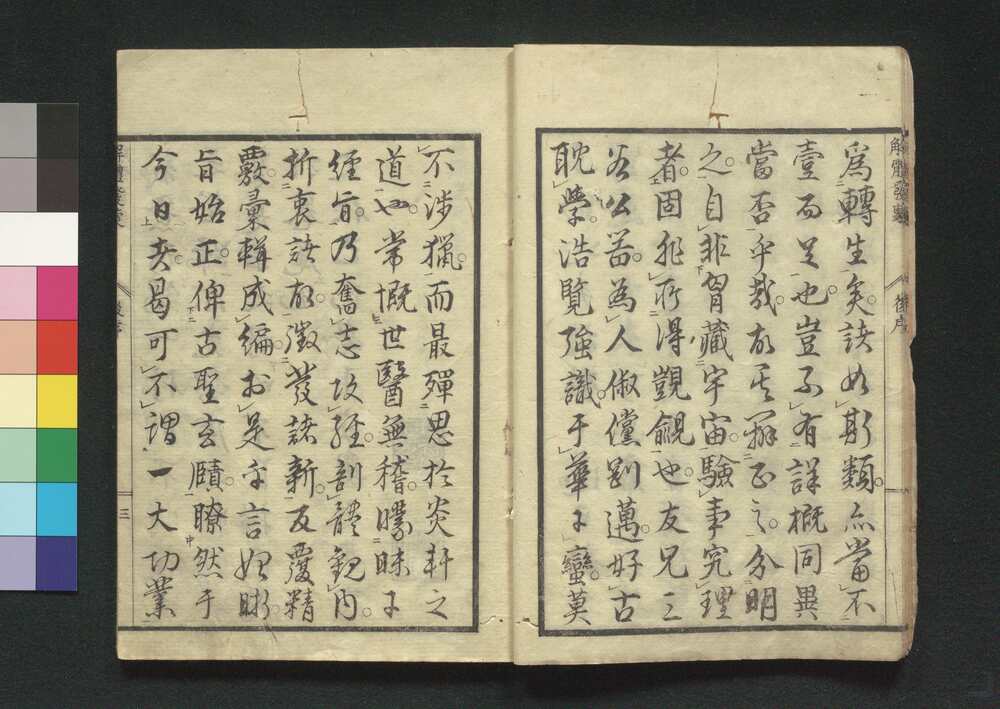 解體發蒙
後序
為轉生矣訣如斯類亦當不
壹而足也豈不有詳概同異
當否乎哉故其辨正之分明
之自非胷藏宇宙驗事究理
者固非所得覬覦也友兄三
谷公器為人俶儻別邁好古
耽學浩覽強識于華于蠻莫
不涉獵而最殫思於炎軒之
道也常慨世醫無稽曚昧于
經旨乃奮志攻經剖體観內
折衷諸故徵發諸新反覆精
覈彙輯成編於是乎言始晰
旨始正俾古聖玄賾瞭然于
今日者曷可不謂一大功業
三